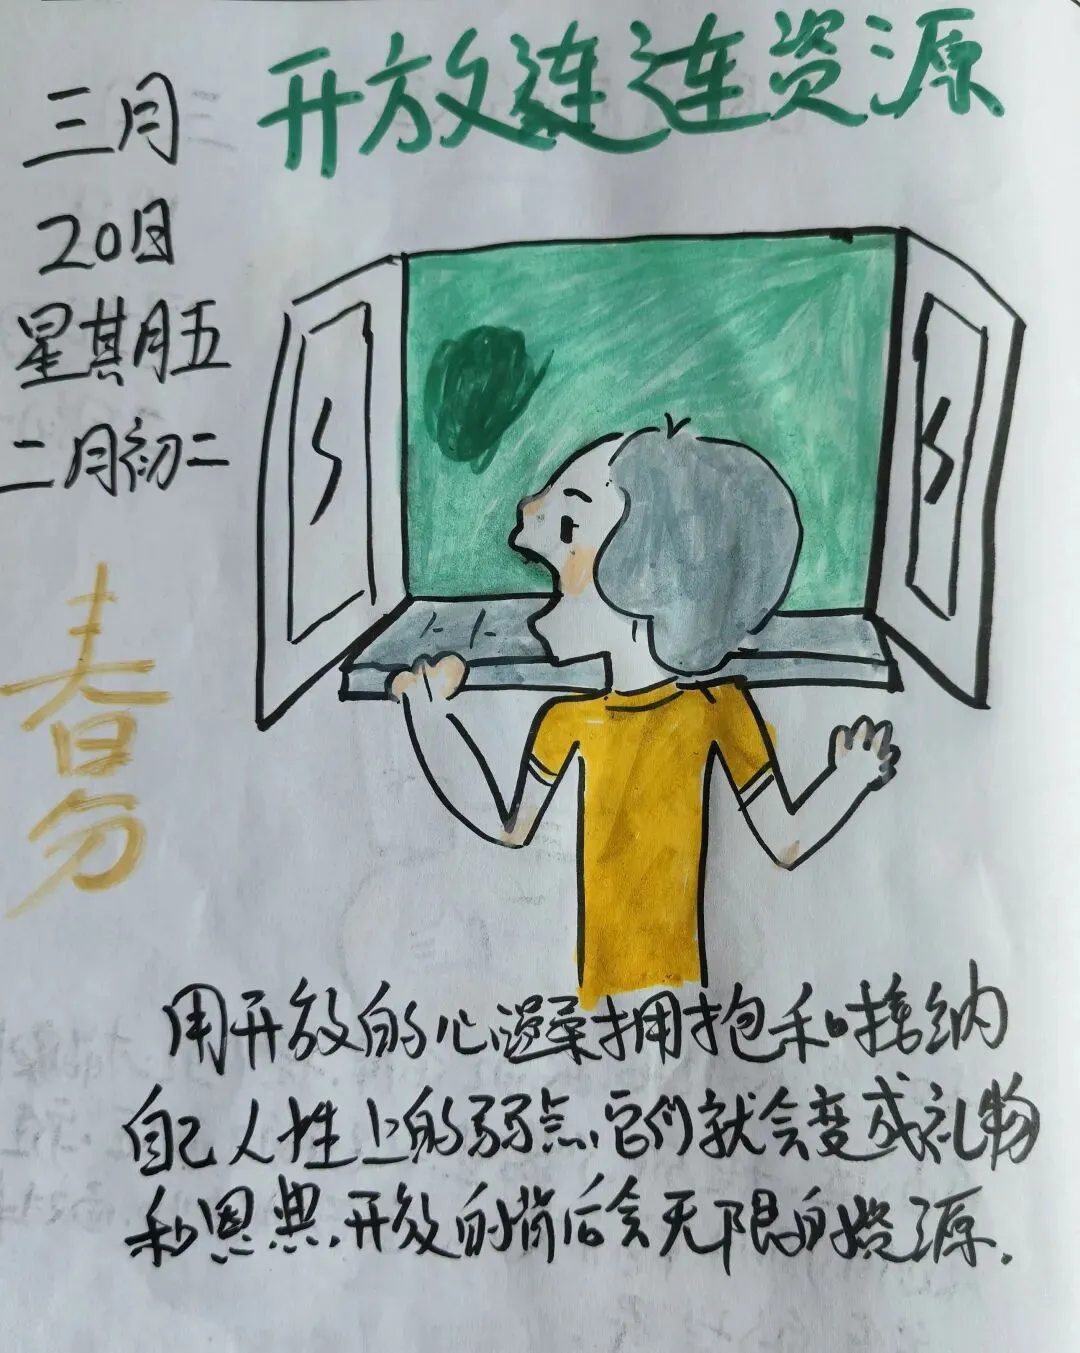 开放连连资源
三月
20日
星期五
二月初二
春分
用开放的心拥抱和接纳
自己人性上的弱点,它们就会变成礼物
和恩典.开放的背后会无限的资源.